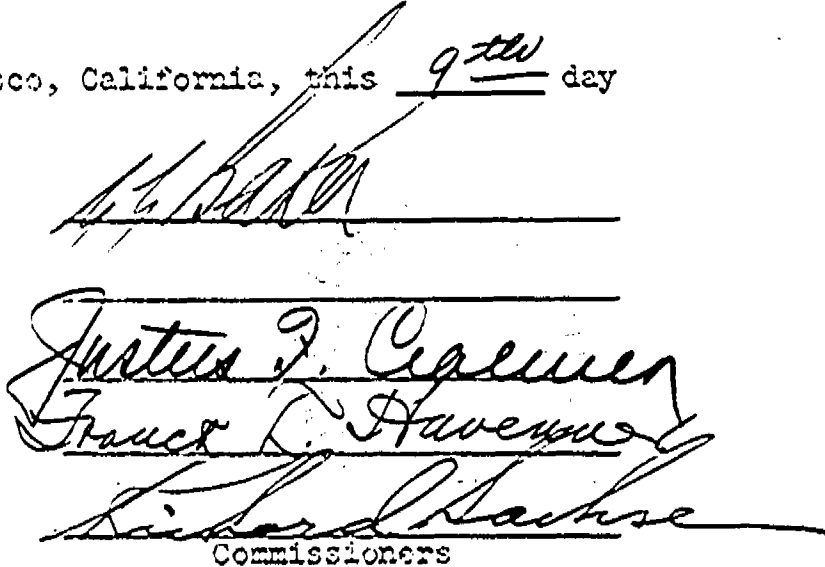 sco, California, this 9th day
Baker
Justus F. Craemer
Franck R. Havenner
Richard Sachse
Commissioners